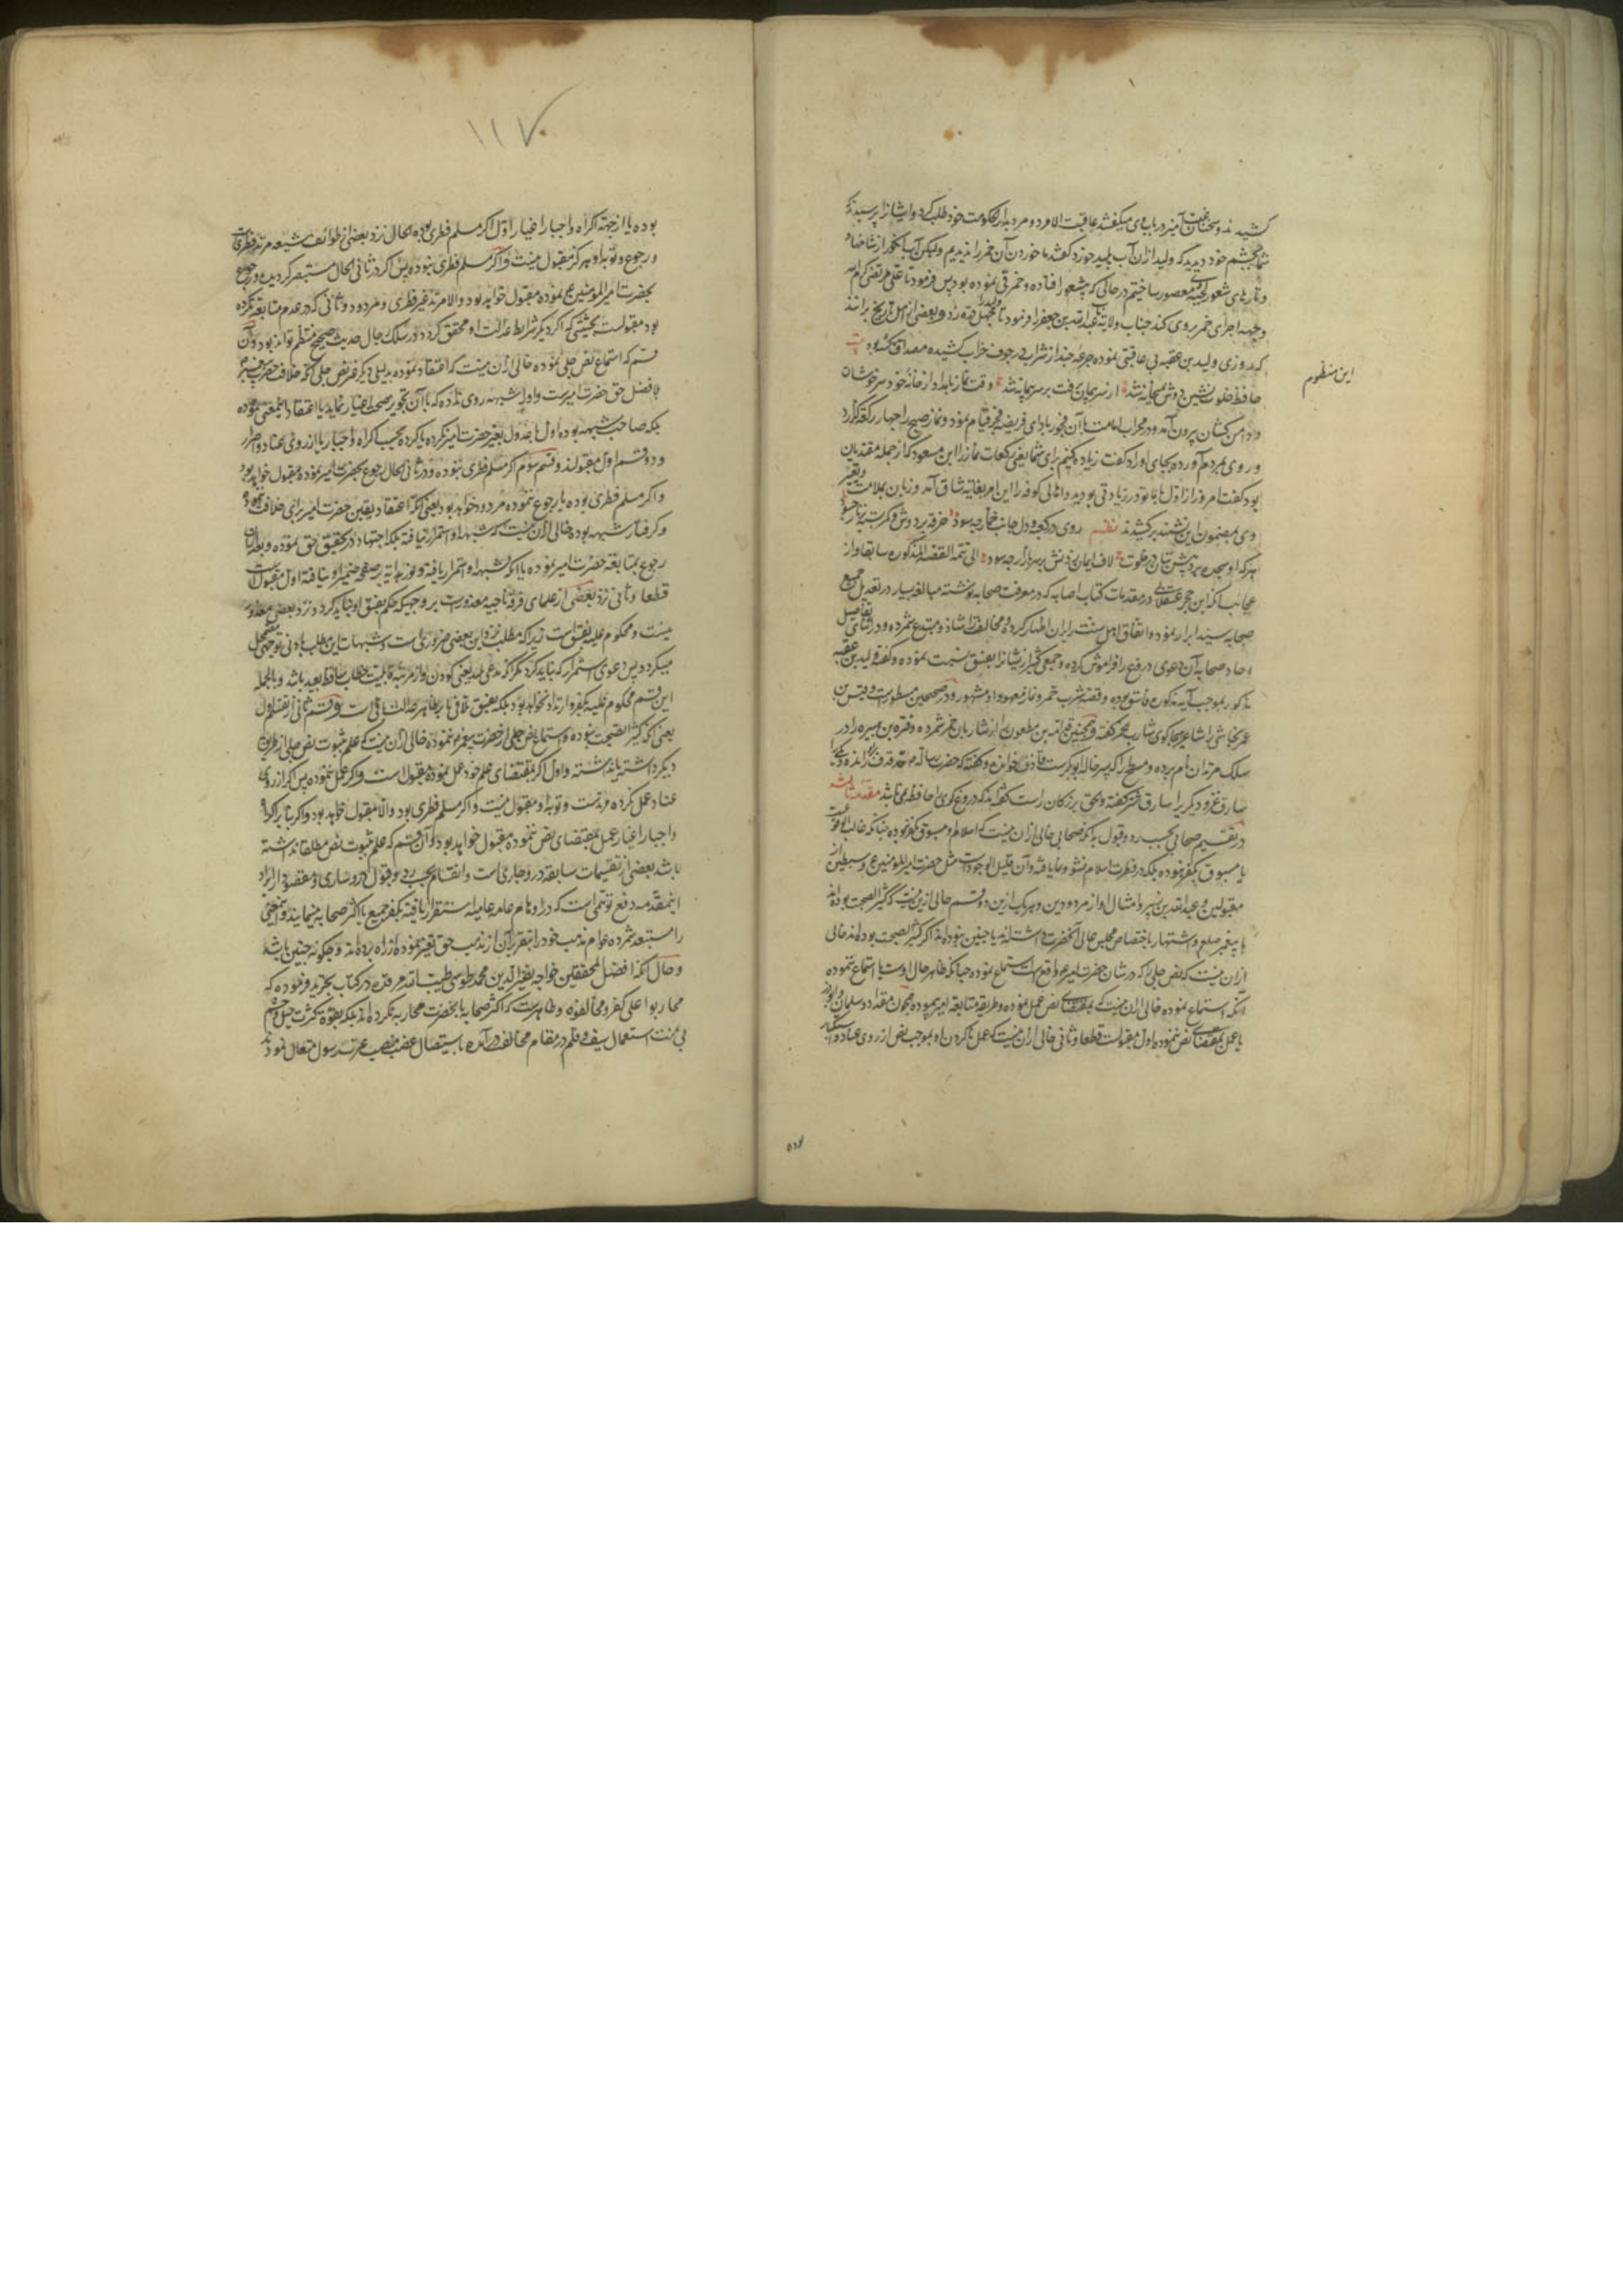 کشیدند و سخنان آمیز در باب وی میگفتند عاقبت الامر دو مرد بدار الحکومت خود طلب کرد و ایشانرا پرسید که
شما بچشم خود دیدید که ولید ازان آب پلید خورد گفتند ما خوردن آن خمر را ندیدیم ولیکن آب انگور از شاخها و
و تارهای شعور لحیه معصور ساختیم در حالی که بیشعور افتاده و خمر قی نموده بود پس فرمود تا علی مرتضی کرم الله
وجهه اجرای خمر بر وی کند جناب ولایت عبدالله بن جعفر را فرمود تا ولید را چهل تازیانه زد و بعضی از اهل تاریخ برانند
که روزی ولید بن عقبه بی عاقبتی نموده جرعه چند از شراب در جوف خراب کشیده مصداق گشته بود
این منظوم
حافظ خلوت نشین دوش بمیخانه شد از سر پیمان برفت بر سر پیمانه شد وقت نماز بامداد از خانه خود سرخوشان
و دامن کشان بیرون آمد و در محراب امامت با آن فجور بادای فریضه فجر قیام نمود و نماز صبح را چهار رکعة گزارد
و روی بمردم آورده بجای اوراد گفت زیاده کنیم برای شما یعنی رکعات نماز را ابن مسعود که از جمله مقتدیان
بود گفت امروز از اول ما با تو در زیادتی بودیم و اهالی کوفه را این امر بغایة شاق آمد و زبان بملامت
وی بمضمون این نشید برکشیدند نظم روی در کعبه و دل جانب خمار چه سود خرقه بر دوش و کمر بسته بزنار چه سود
هر که او سجده بر پیش بتان در خلوت لاف ایمان زدنش بر سر بازار چه سود الی تتمة القصة المذکوره سابقا و از
عجائب آنکه ابن حجر عسقلانی در مقدمات کتاب اصابه که در معرفت صحابه نوشته مبالغه بسیار در تعدیل جمیع
صحابه سید ابرار نموده و اتفاق اهل سنت بران اظهار کرده و مخالف را شاذ و مبتدع شمرده و در اثنای تفاصیل
احاد صحابه آن دعوی دروغ را فراموش کرده و جمعی کثیر از ایشانرا بفسق نسبت نموده و گفته ولید بن عقبه
مذکور بموجب آیه مذکوره فاسق بوده و قصه شرب خمر و نماز معهود او مشهور و در صحیحین مسطور است و قیس بن
عمر نجاشی را شاعر هجاگوی شارب خمر گفته و همچنین قدامه بن مظعون را از شاربان خمر شمرده و قره بن هبیره را در
سلک مرتدان نام برده و مسطح را که پسر خاله ابوبکر است قاذف خوانده و گفته که حضرت رسالة حد قذف برو رانده و
سارق غزو دیگریرا سارق شتر گفته و بحق بزرگان راست گفته اند که دروغ گوی را حافظه نمی باشد مقدمه ثالثه
در تقسیم صحابی بحسب رد و قبول بدانکه صحابی خالی ازان نیست که اسلام او مسبوق بکفر بوده چنانکه غالب الوقوعست
یا مسبوق بکفر نبوده بلکه در فطرت اسلام نشو و نما یافته و آن قلیل الوجود است مثل حضرت امیر المؤمنین ع و سبطین از
مقبولین و عبدالله بن زبیر و امثال او از مردودین و هر یک ازین دو قسم خالی ازین نیست که کثیر الصحبت بوده اند
با پیغمبر صلعم و اشتهار باختصاص مجلس عالی آنحضرت داشته اند یا چنین نبوده اند اگر کثیر الصحبت بوده اند خالی
ازان نیست که نص جلی را که در شان حضرت امیر ع واقع است استماع نموده چنانکه ظاهر حال اوست یا استماع ننموده
آنکه استماع نموده خالی ازان نیست که بمقتضای نص عمل نموده و طریقه متابعه امیر پیموده همچون مقداد و سلمان و ابوذر
یا عمل بمقتضای نص ننموده اول مقبولست قطعا و ثانی خالی ازان نیست که عمل نکردن او بموجب نص از روی عناد و استکبار
بوده
۱۱۷
بوده یا از جهة اکراه و اجبار اغیار اول اگر مسلم فطری بوده الحال نزد بعضی از طوائف شیعه مرتد فطریست
و رجوع و توبه او هرگز مقبول نیست و اگر مسلم فطری نبوده پس اگر در ثانی الحال مستبصر گردیده و رجوع
بحضرت امیر المؤمنین ع نموده مقبول خواهد بود و الا مرتد غیر فطری و مردود و ثانی که در عدم متابعه مکره
بود مقبولست بحیثیتی که اگر دیگر شرایط عدالت او محقق گردد در سلک رجال حدیث صحیح منتظم تواند بود و آن
قسم که استماع نص جلی نموده خالی ازان نیست که اعتقاد نموده بدلیلی دیگر غیر نص جلی که خلافت حضرت پیغمبر
بلا فصل حق حضرت امیرست و او را شبهه روی نداده که با آن تجویز صحت اختیار نماید یا اعتقاد این معنی نموده
بلکه صاحب شبهه بوده اول یا عدول بغیر حضرت امیر نکرده یا کرده بحسب اکراه و اجبار یا از روی عناد و اصرار
و دو قسم اول مقبولند و قسم سوم اگر مسلم فطری نبوده و در ثانی الحال رجوع بحضرت امیر نموده مقبول خواهد بود
و اگر مسلم فطری بوده یا رجوع ننموده مردود خواهد بود یعنی آنکه اعتقاد یقین حضرت امیر برای خلافت ننموده
و گرفتار شبهه بوده خالی ازان نیست که شبهه او استمرار نیافته بلکه اجتهاد در تحقیق حق نموده و بعد ازان
رجوع بمتابعة حضرت امیر نموده یا آنکه شبهه او استمرار یافته و نور هدایه بر صفحه ضمیر او نتافته اول مقبول است
قطعا و ثانی نزد بعضی از علمای فرقه ناجیه معذورست بر وجهیکه حکم بفسق او نباید کرد و نزد بعضی معذور
نیست و محکوم علیه بفسق است زیرا که مطلب نزد این بعضی ضروری است و شبهات این مطلب بادنی توجهی مضمحل
میگردد پس دعوی استمرار که نباید کرد مگر آنکه مدعی علیه یعنی کودن و از مرتبه قابلیت خطاب ساقط و بعید باشد و بالجمله
این قسم محکوم علیه بکفر و ارتداد نخواهد بود بلکه بفسق ملاقی یا بر ظاهر عدالت باقی است و قسم ثانی از تقسیم اول
یعنی آنکه کثیر الصحبت نبوده و استماع نص جلی از حضرت پیغمبر ننموده خالی ازان نیست که علم بثبوت نص جلی از طریق
دیگر داشته یا نداشته و اول اگر بمقتضای علم خود عمل نموده مقبول است و اگر عمل ننموده پس اگر از روی
عناد عمل نکرده مرتدست و توبه او مقبول نیست و اگر مسلم فطری بود و الا مقبول خواهد بود و اگر بنا بر اکراه
و اجبار اغیار عمل بمقتضای نص ننموده مقبول خواهد بود و آن قسم که علم بثبوت نص مطلقا نداشته
باشد بعضی از تقسیمات سابقه درو جاری است و انقسام بحسب رد و قبول درو ساری و مقصود از ایراد
این مقدمه دفع توهمی است که در اوهام عامه عامیان استقرار یافته که شیعه تکفیر جمیع یا اکثر صحابه مینمایند و این معنی
را مستبعد شمرده عوام مذهب خود را بتقریر آن از مذهب حق متنفر نموده از راه برده اند و چگونه چنین باشد
و حال آنکه افضل المحققین خواجه نصیر الدین محمد طوسی طیب الله مرقده در کتاب تجرید فرموده که
محاربوا علی کفرة و مخالفوه فسقة و ظاهرست که اکثر صحابه با آنحضرت محاربه نکرده اند بلکه بقوت کثرت خیل و حشم
بی منت استعمال سیف و قلم در مقام مخالفت درآمده باستقلال غصب منصب عترت رسول متعال نمودند